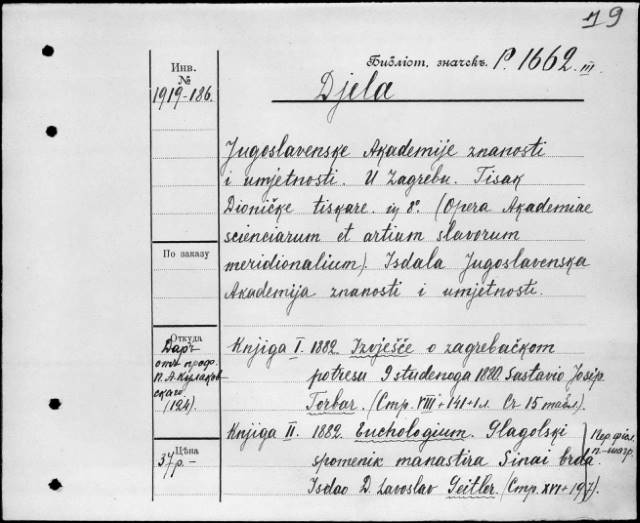 19
Библіот. значекъ. P. 1662. III
Инв. №
1919-186.
Djela
Jugoslavenske Akademije znanosti
i umjetnosti. U Zagrebu. Tisak
Dioničke tiskare. in 8°. (Opera Akademiae
scienciarum et artium slavorum
meridionalium). Isdala Jugoslavenska
Akademija znanosti i umjetnosti.
По заказу
Откуда
Даръ
отъ проф.
П. А. Кулаков-
скаго
(124).
Knjiga I. 1882. Izvješće o zagrebačkom
potresu 9 studenoga 1880. Sastavio Josip
Torbar. (Стр. VIII + 141 + 1 л. Съ 15 табл).
Knjiga II. 1882. Euchologium. Glagolski
spomenik manastira Sinai brda.
Isdao D. Lavoslav Geitler. (Стр. XVI + 197)
Цѣна
37 р. –